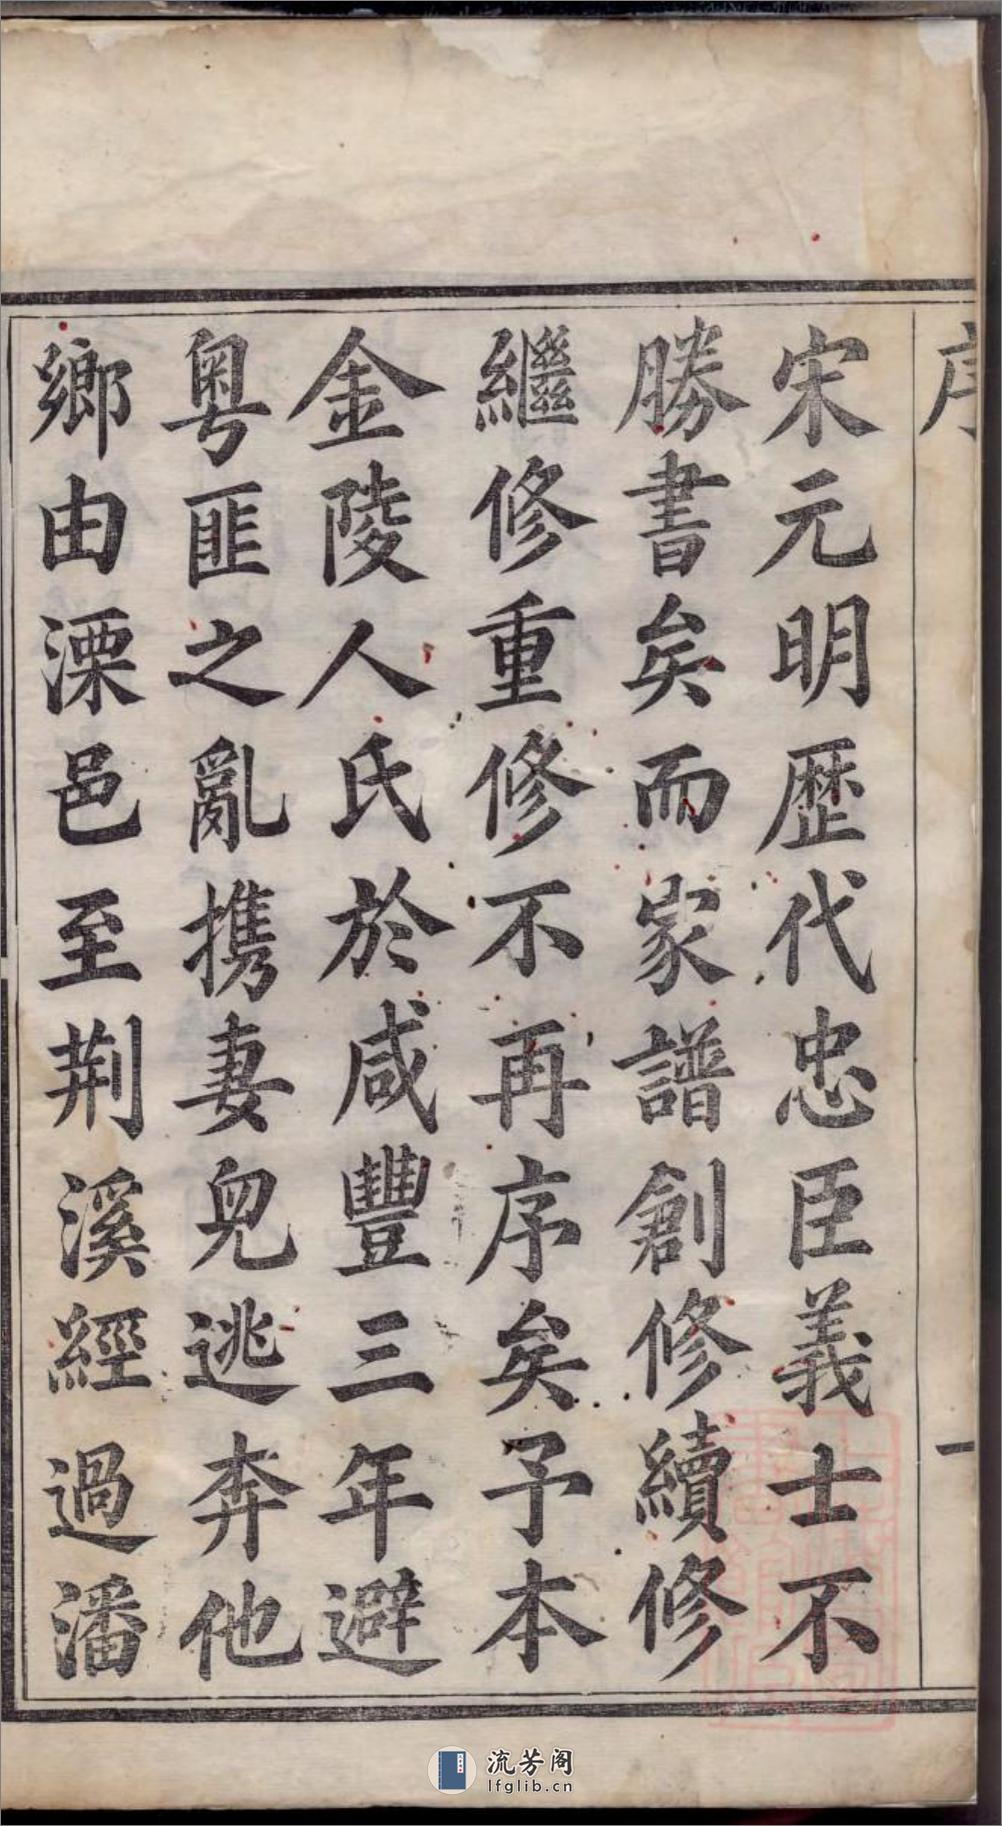 序 一
宋元明歴代忠臣義士不
勝書矣而家譜創修續修
繼修重修不再序矣予本
金陵人氏於咸豐三年避
粤匪之亂携妻兒逃奔他
鄉由溧邑至荆溪經過潘
流芳阁
lfglib.cn